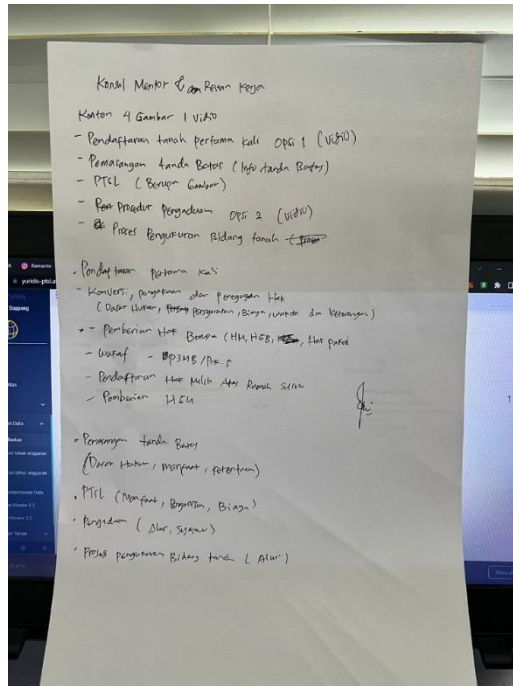 Konsul Mentor & Rekan Kerja
Konten 4 Gambar 1 Vidio
- Pendaftaran tanah pertama kali opsi 1 (Vidio)
- Pemasangan tanda Batas (Info tanda Batas)
- PTSL (Berupa Gambar)
- Prosedur Pengaduan opsi 2 (Vidio)
- Proses Pengukuran Bidang tanah
. Pendaftaran Pertama Kali
- Konversi, pengakuan dan penegasan Hak
(Dasar Hukum, persyaratan, Biaya, waktu dan keterangan)
- Pemberian Hak Berupa (HM, HGB, Hak pakai
- Wakaf - P3MB/Prk.5
- Pendaftaran Hak Milik Atas Rumah Susun
- Pemberian HGU
. Pemasangan tanda Batas
(Dasar Hukum, Manfaat, Ketentuan)
. PTSL (Manfaat, Biaya)
. Pengaduan (Alur, Syarat)
. Proses pengukuran Bidang tanah (Alur)
yuridis-ptsl.a
Soppeng